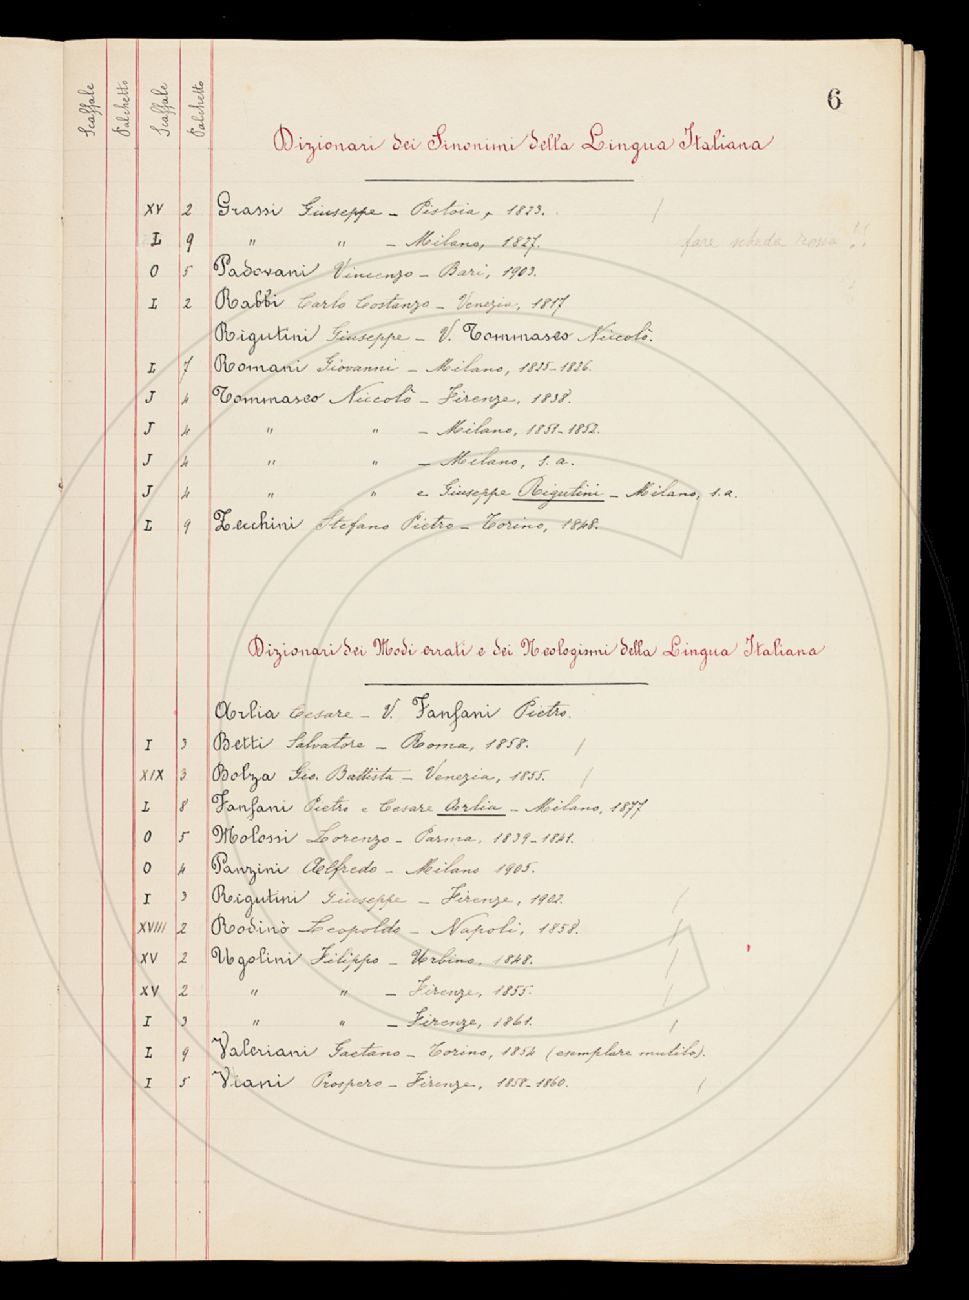 6
Scaffale Palchetto Scaffale Palchetto
Dizionari dei Sinonimi della Lingua Italiana
XV 2 Grassi Giuseppe - Pistoia, 1823. /
L 9 " " - Milano, 1827. fare scheda rossa !!
O 5 Padovani Vincenzo - Bari, 1903.
I 2 Rabbi Carlo Costanzo - Venezia, 1817
Rigutini Giuseppe - V. Tommaseo Niccolò.
L 7 Romani Giovanni - Milano, 1825-1826.
J 4 Tommaseo Niccolò - Firenze, 1838.
J 4 " " - Milano, 1851-1852.
J 4 " " - Milano, s. a.
J 4 " " e Giuseppe Rigutini - Milano, s. a.
L 9 Zecchini Stefano Pietro - Torino, 1848.
Dizionari dei Modi errati e dei Neologismi della Lingua Italiana
Arlia Cesare - V. Fanfani Pietro.
I 3 Betti Salvatore - Roma, 1858. /
XIX 3 Bolza Gio. Battista - Venezia, 1855. /
L 8 Fanfani Pietro e Cesare Arlia - Milano, 1877
O 5 Molossi Lorenzo - Parma, 1839-1841.
O 4 Panzini Alfredo - Milano 1905.
I 3 Rigutini Giuseppe - Firenze, 1902. /
XVIII 2 Rodinò Leopoldo - Napoli, 1858. /
XV 2 Ugolini Filippo - Urbino, 1848. /
XV 2 " " - Firenze, 1855. /
I 3 " " - Firenze, 1861. /
L 9 Valeriani Gaetano - Torino, 1854 (esemplare mutilo).
I 5 Viani Prospero - Firenze, 1858-1860. /